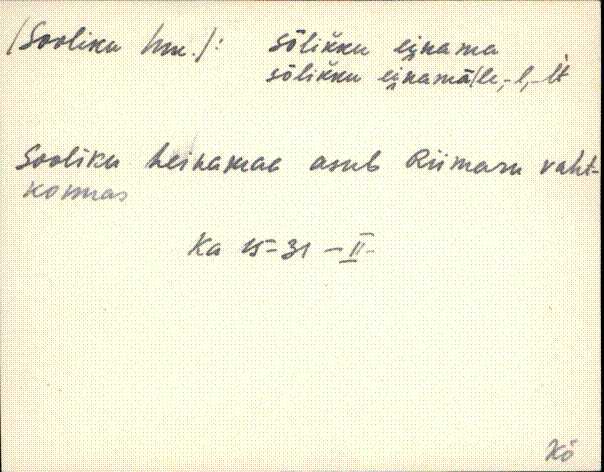 /Sooliku hm./: sōlikku ei̯nama
sōlikku ei̯namā/le, -l, -lt
Sooliku heinamaa asub Riimaru vaht-
konnas
Ka 15-31 - II -
Kö